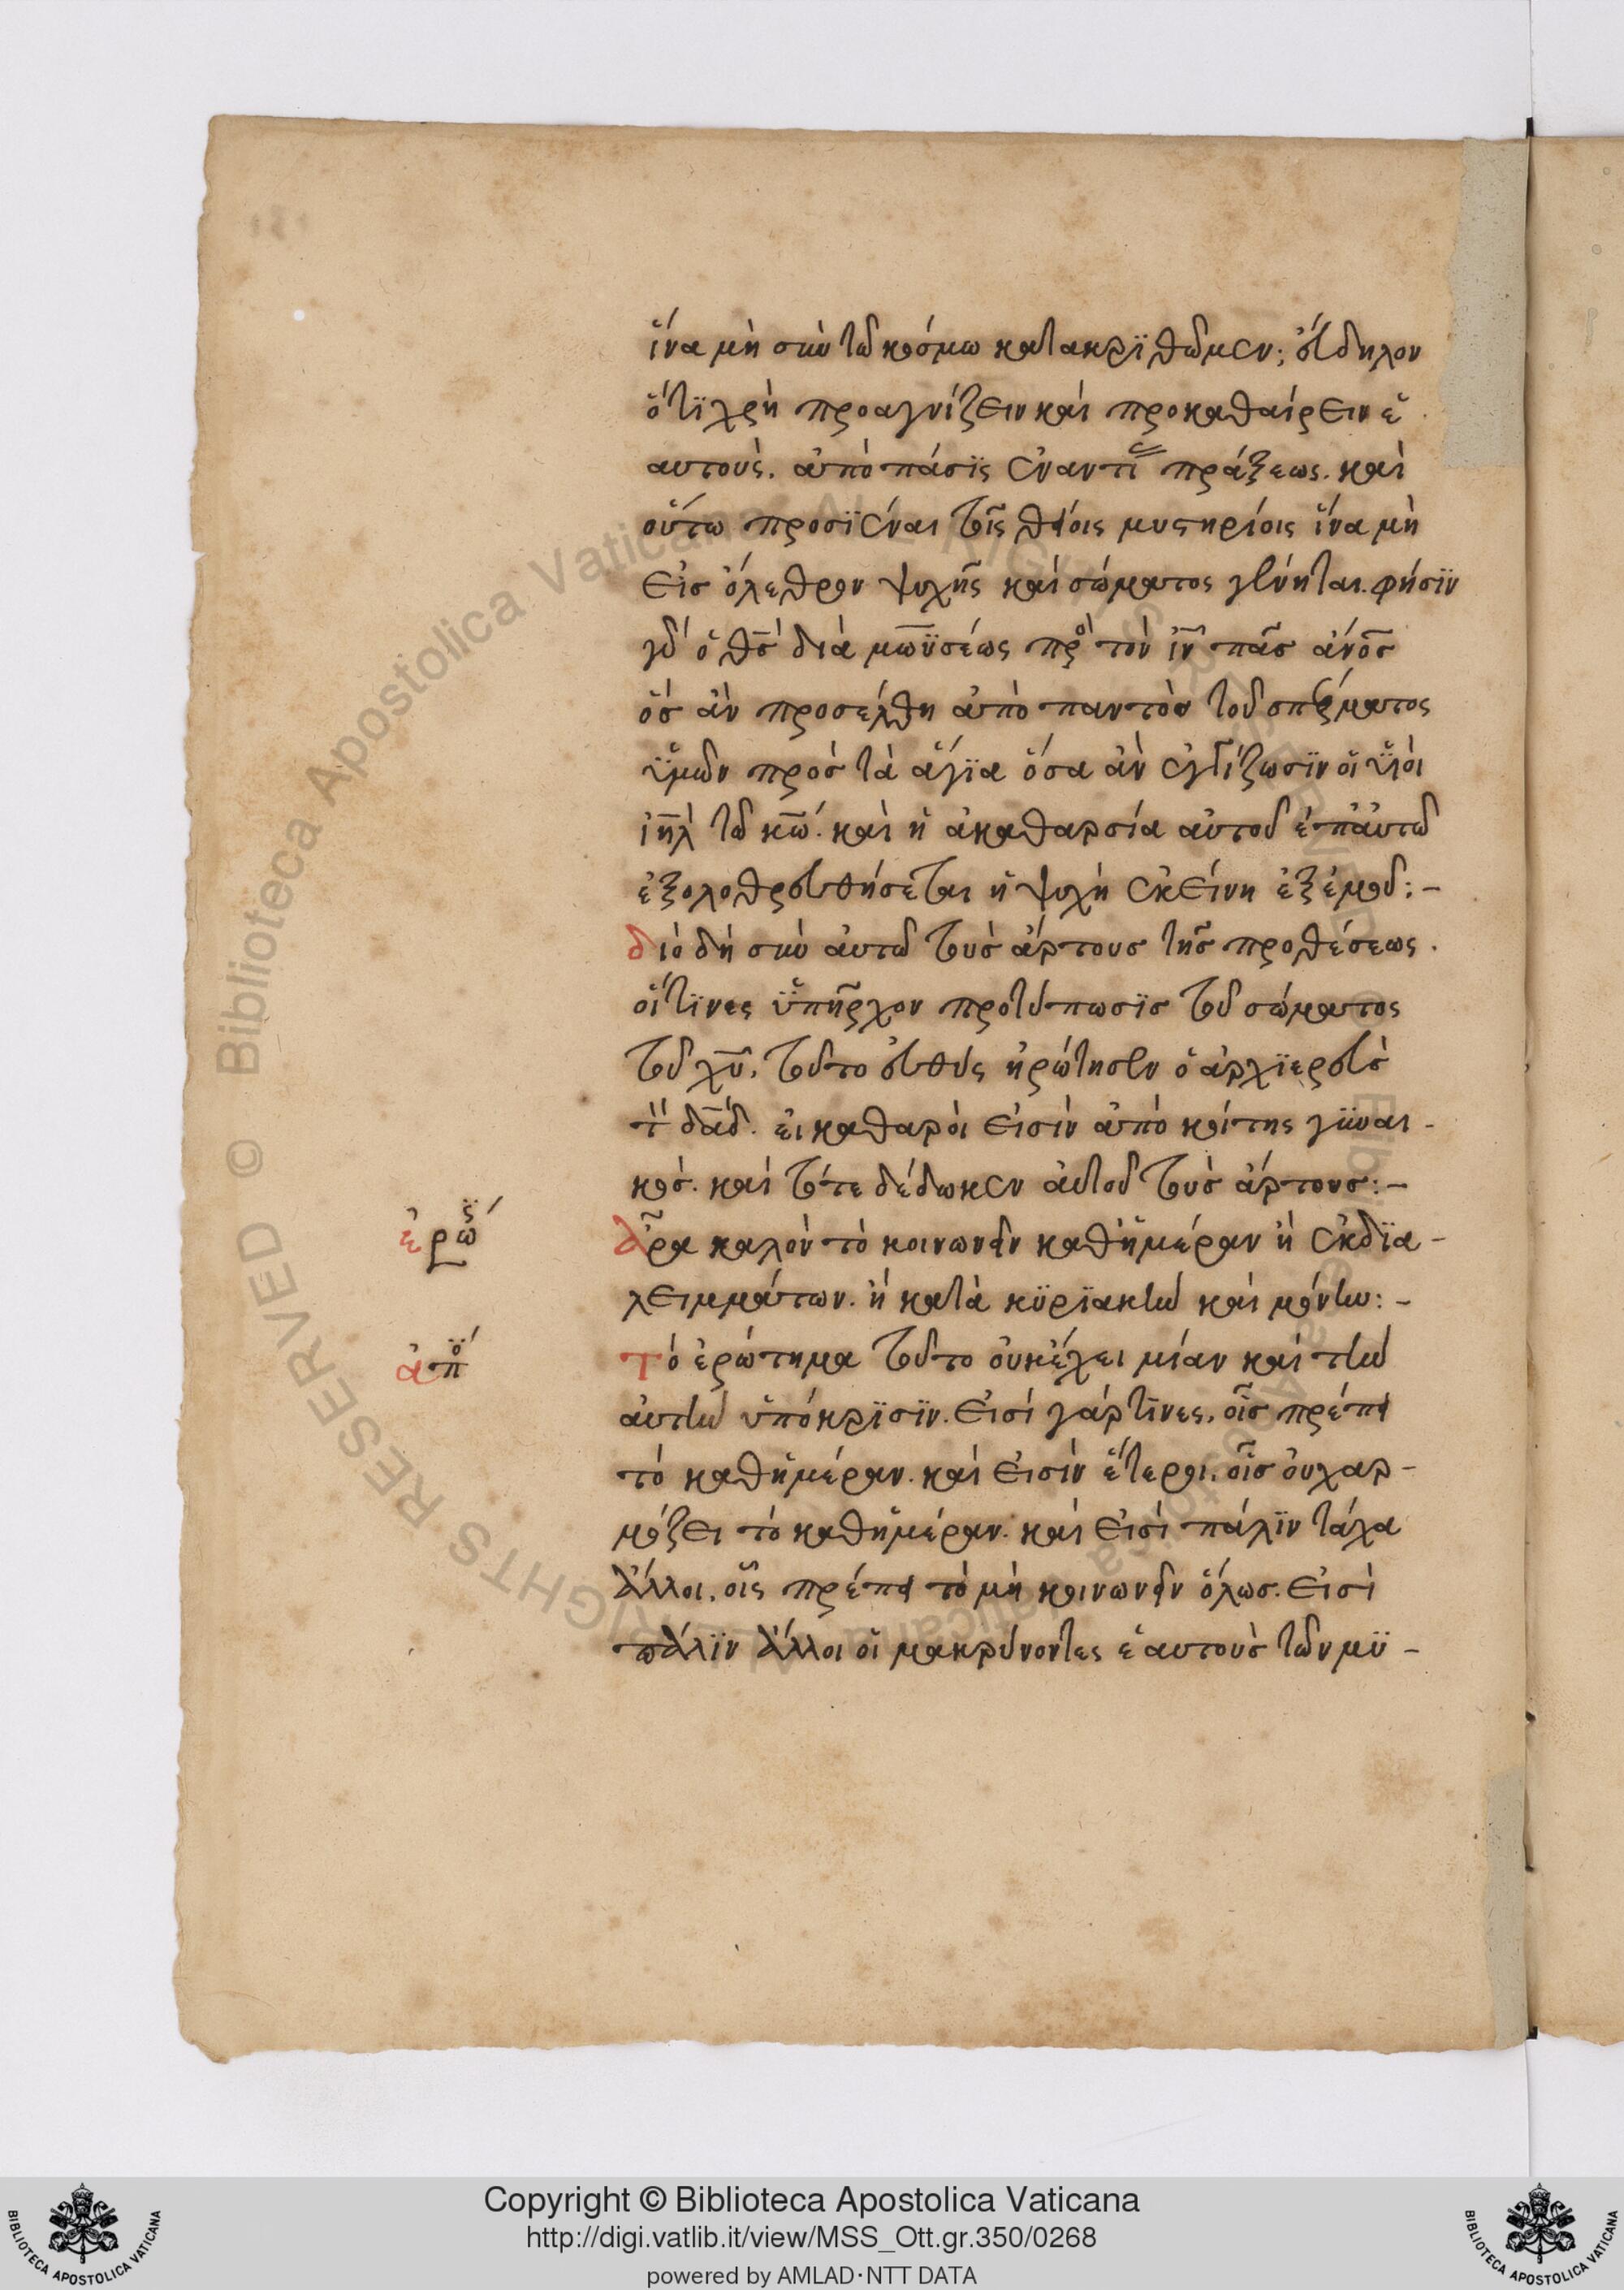 ἵνα μὴ σὺν τῶ κόσμω κατακρϊθῶμεν; εὔδηλον
ὅτϊ χρὴ προαγνίζειν καὶ προκαθαίρειν ἑ
αυτοὺς. ἀπὸ πάσϊς ἐναντί πράξεως. καὶ
οὕτω προσϊέναι τοῖς θείοις μυστηρίοις ἵνα μὴ
εἰσ ὄλεθρον ψυχῆς καὶ σώματος γένηται. φήσϊν
γὰρ ὁ θς διὰ μωϋσέως πρὸ τὸν ιν πᾶσ ἀνος
ὅσ ἀν προσέλθη ἀπὸ παντὸσ τοῦ σπέρματος
ὑμῶν πρὸσ τὰ ἅγϊα ὅσα ἀν ἁγϊάζωσϊν οἱ ϋἱοὶ
ιηλ τῶ κω. καὶ ἡ ἀκαθαρσία αὐτοῦ ἐπ ἀυτῶ
ἐξολοθρευθήσεται ἡ ψυχὴ ἐκείνη ἐξ ἐμοῦ:–
διὸ δὴ σὺν ἀυτῶ τοὺσ ἄρτουσ τῆσ προθέσεως.
οἵτϊνες ϋπῆρχον προτύπωσϊσ τοῦ σώματος
τοῦ χυ. τοῦτο εὐθύς ἠρώτησεν ὁ ἀρχϊερεὺσ
τ δαδ. ἐι καθαροὶ εἰσὶν ἀπὸ κοίτης γϋναι-
κόσ. καὶ τότε δέδωκεν ἀυτοῦ τοὺσ ἄρτουσ:–
ἐρώ
ἆρα καλὸν τὸ κοινωνεῖν καθἡμέραν ἢ ἐκ δϊα-
λειμμάτων. ἢ κατὰ κϋρϊακὴν καὶ μόνην:–
ἀπό
τὸ ἐρώτημα τοῦτο ὀυκ ἔχει μίαν καὶ τὴν
ἀυτὴν ὑπόκρϊσϊν. εἰσί γάρ τϊνες. οἷσ πρέπει
τὸ καθἡμέραν. καὶ εἰσὶν ἕτεροι. οἷσ ὀυχ αρ-
μόζει τὸ καθἡμέραν. καὶ εἰσὶ πάλϊν τάχα
ἄλλοι. οἷς πρέπει τὸ μὴ κοινωνεῖν ὅλωσ. εἰσὶ
πάλϊν ἄλλοι οἱ μακρύνοντες ἑαυτοὺσ τῶν μϋ-
Copyright © Biblioteca Apostolica Vaticana
http://digi.vatlib.it/view/MSS_Ott.gr.350/0268
powered by AMLAD·NTT DATA